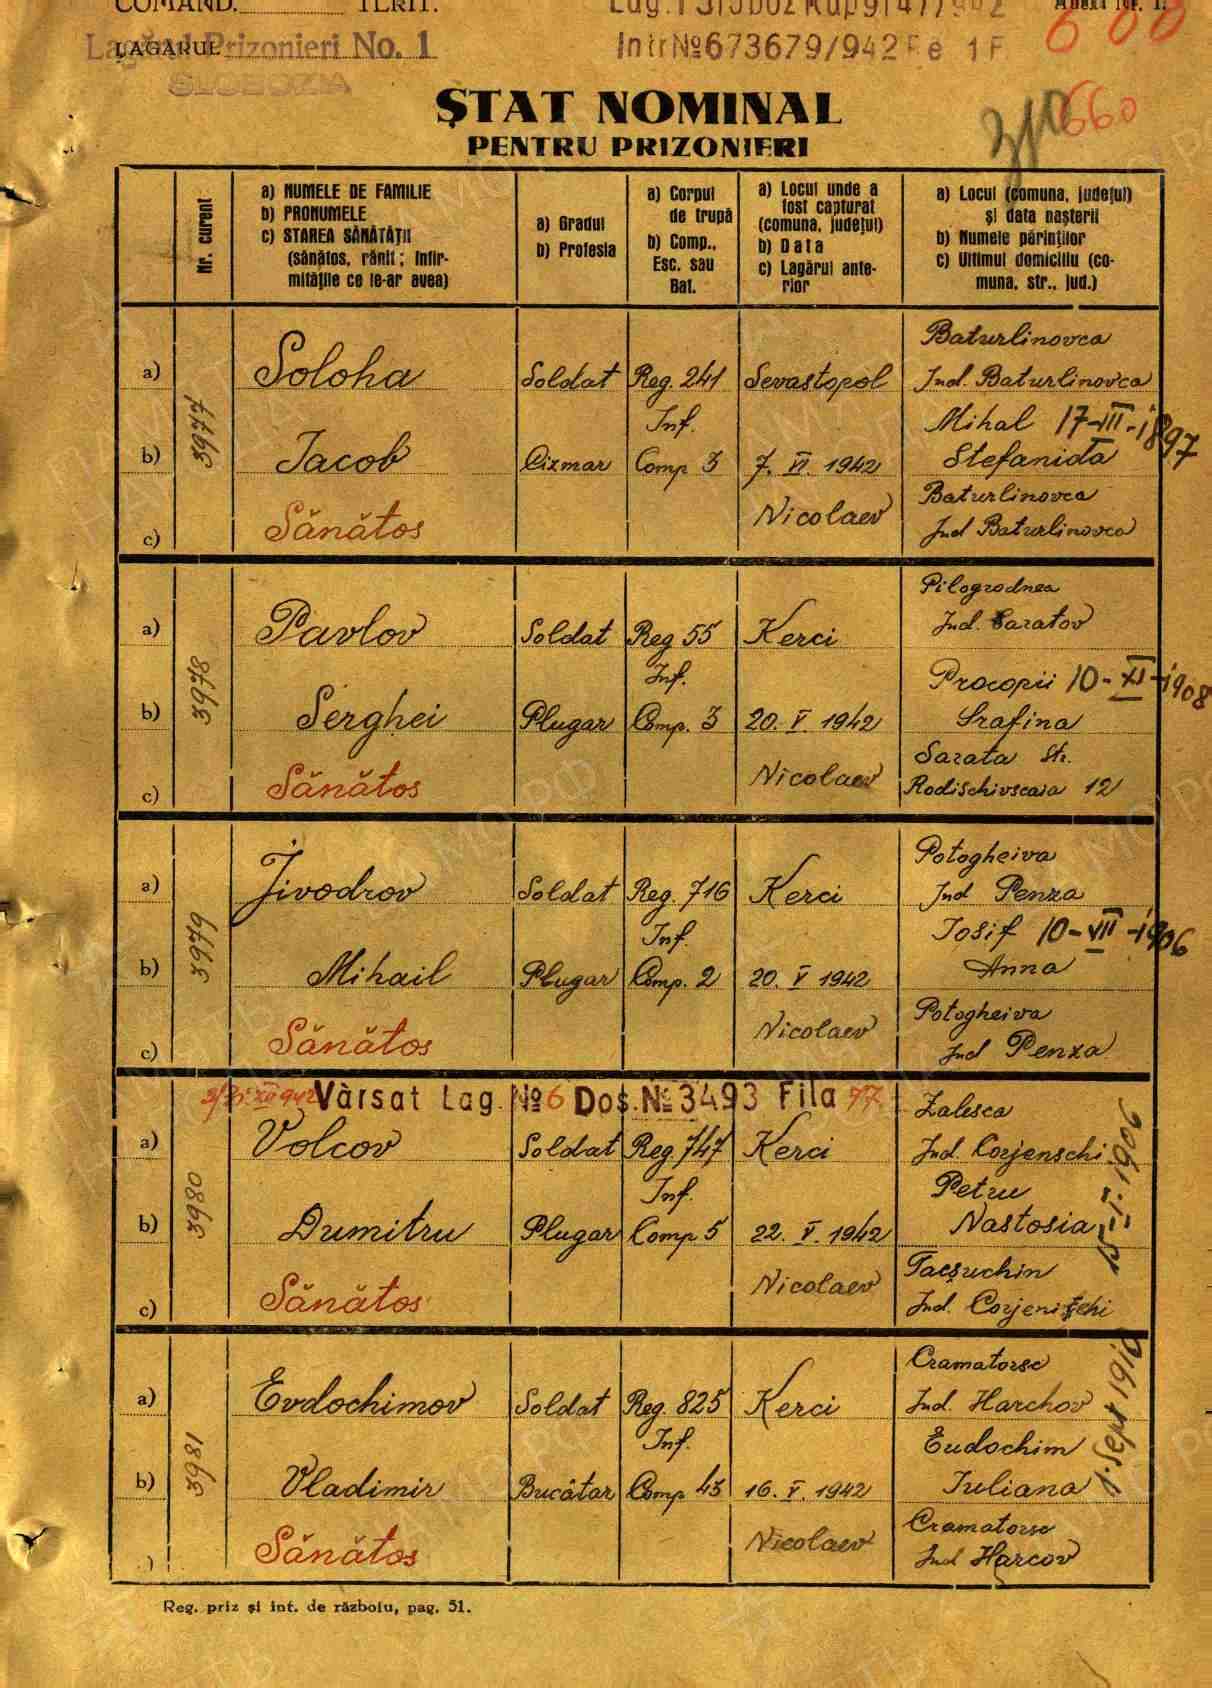 COMAND. TERIT.
Anexa Nr. 1.
LAGĂRUL
Lagărul Prizonieri No. 1
SLOBOZIA
Intr № 673679/942
660
ȘTAT NOMINAL
PENTRU PRIZONIERI
Nr. curent
a) NUMELE DE FAMILIE
b) PRONUMELE
c) STAREA SĂNĂTĂȚII
(sănătos, rănit; infir-
mitățile ce le-ar avea)
a) Gradul
b) Profesia
a) Corpul
de trupă
b) Comp.,
Esc. sau
Bat.
a) Locul unde a
fost capturat
(comuna, județul)
b) Data
c) Lagărul ante-
rior
a) Locul (comuna, județul)
și data nașterii
b) Numele părinților
c) Ultimul domiciliu (co-
muna, str., jud.)
3977
a) Soloha Soldat Reg. 241 Sevastopol
Inf.
b) Iacob Cizmar Comp 3 7. VI. 1942
c) Sănătos Nicolaev
Baturlinovca
Jud. Baturlinovca
Mihal 17-VII-1897
Stefanida
Baturlinovca
Jud Baturlinovca
3978
a) Pavlov Soldat Reg 55 Kerci
Inf.
b) Serghei Plugar Comp. 3 20. V. 1942
c) Sănătos Nicolaev
Pilogrodnea
Jud. Saratov
Procopii 10-XI-1908
Srafina
Sarata str.
Rodischivscaia 12
3979
a) Jivodrov Soldat Reg. 716 Kerci
Inf.
b) Mihail Plugar Comp. 2 20. V 1942
c) Sănătos Nicolaev
Potogheiva
Jud Penza
Iosif 10-VII-1906
Anna
Potogheiva
Jud Penza
Vărsat Lag. № 6 Dos. № 3493 Fila 77
3980
a) Volcov Soldat Reg 747 Kerci
Inf.
b) Dumitru Plugar Comp 5 22. V. 1942
c) Sănătos Nicolaev
Zalesca
Jud. Corjenschi
Petru
Nastosia
15-I-1906
Tacsuchin
Jud. Corjenițchi
3981
a) Evdochimov Soldat Reg. 825 Kerci
Inf.
b) Vladimir Bucâtar Comp 43 16. V. 1942
Sănătos Nicolaev
Cramatorsc
Jud. Harchov
Eudochim
Iuliana
1. Sept 1910
Cramatorsc
Jud Harcov
Reg. priz și int. de războiu, pag. 51.